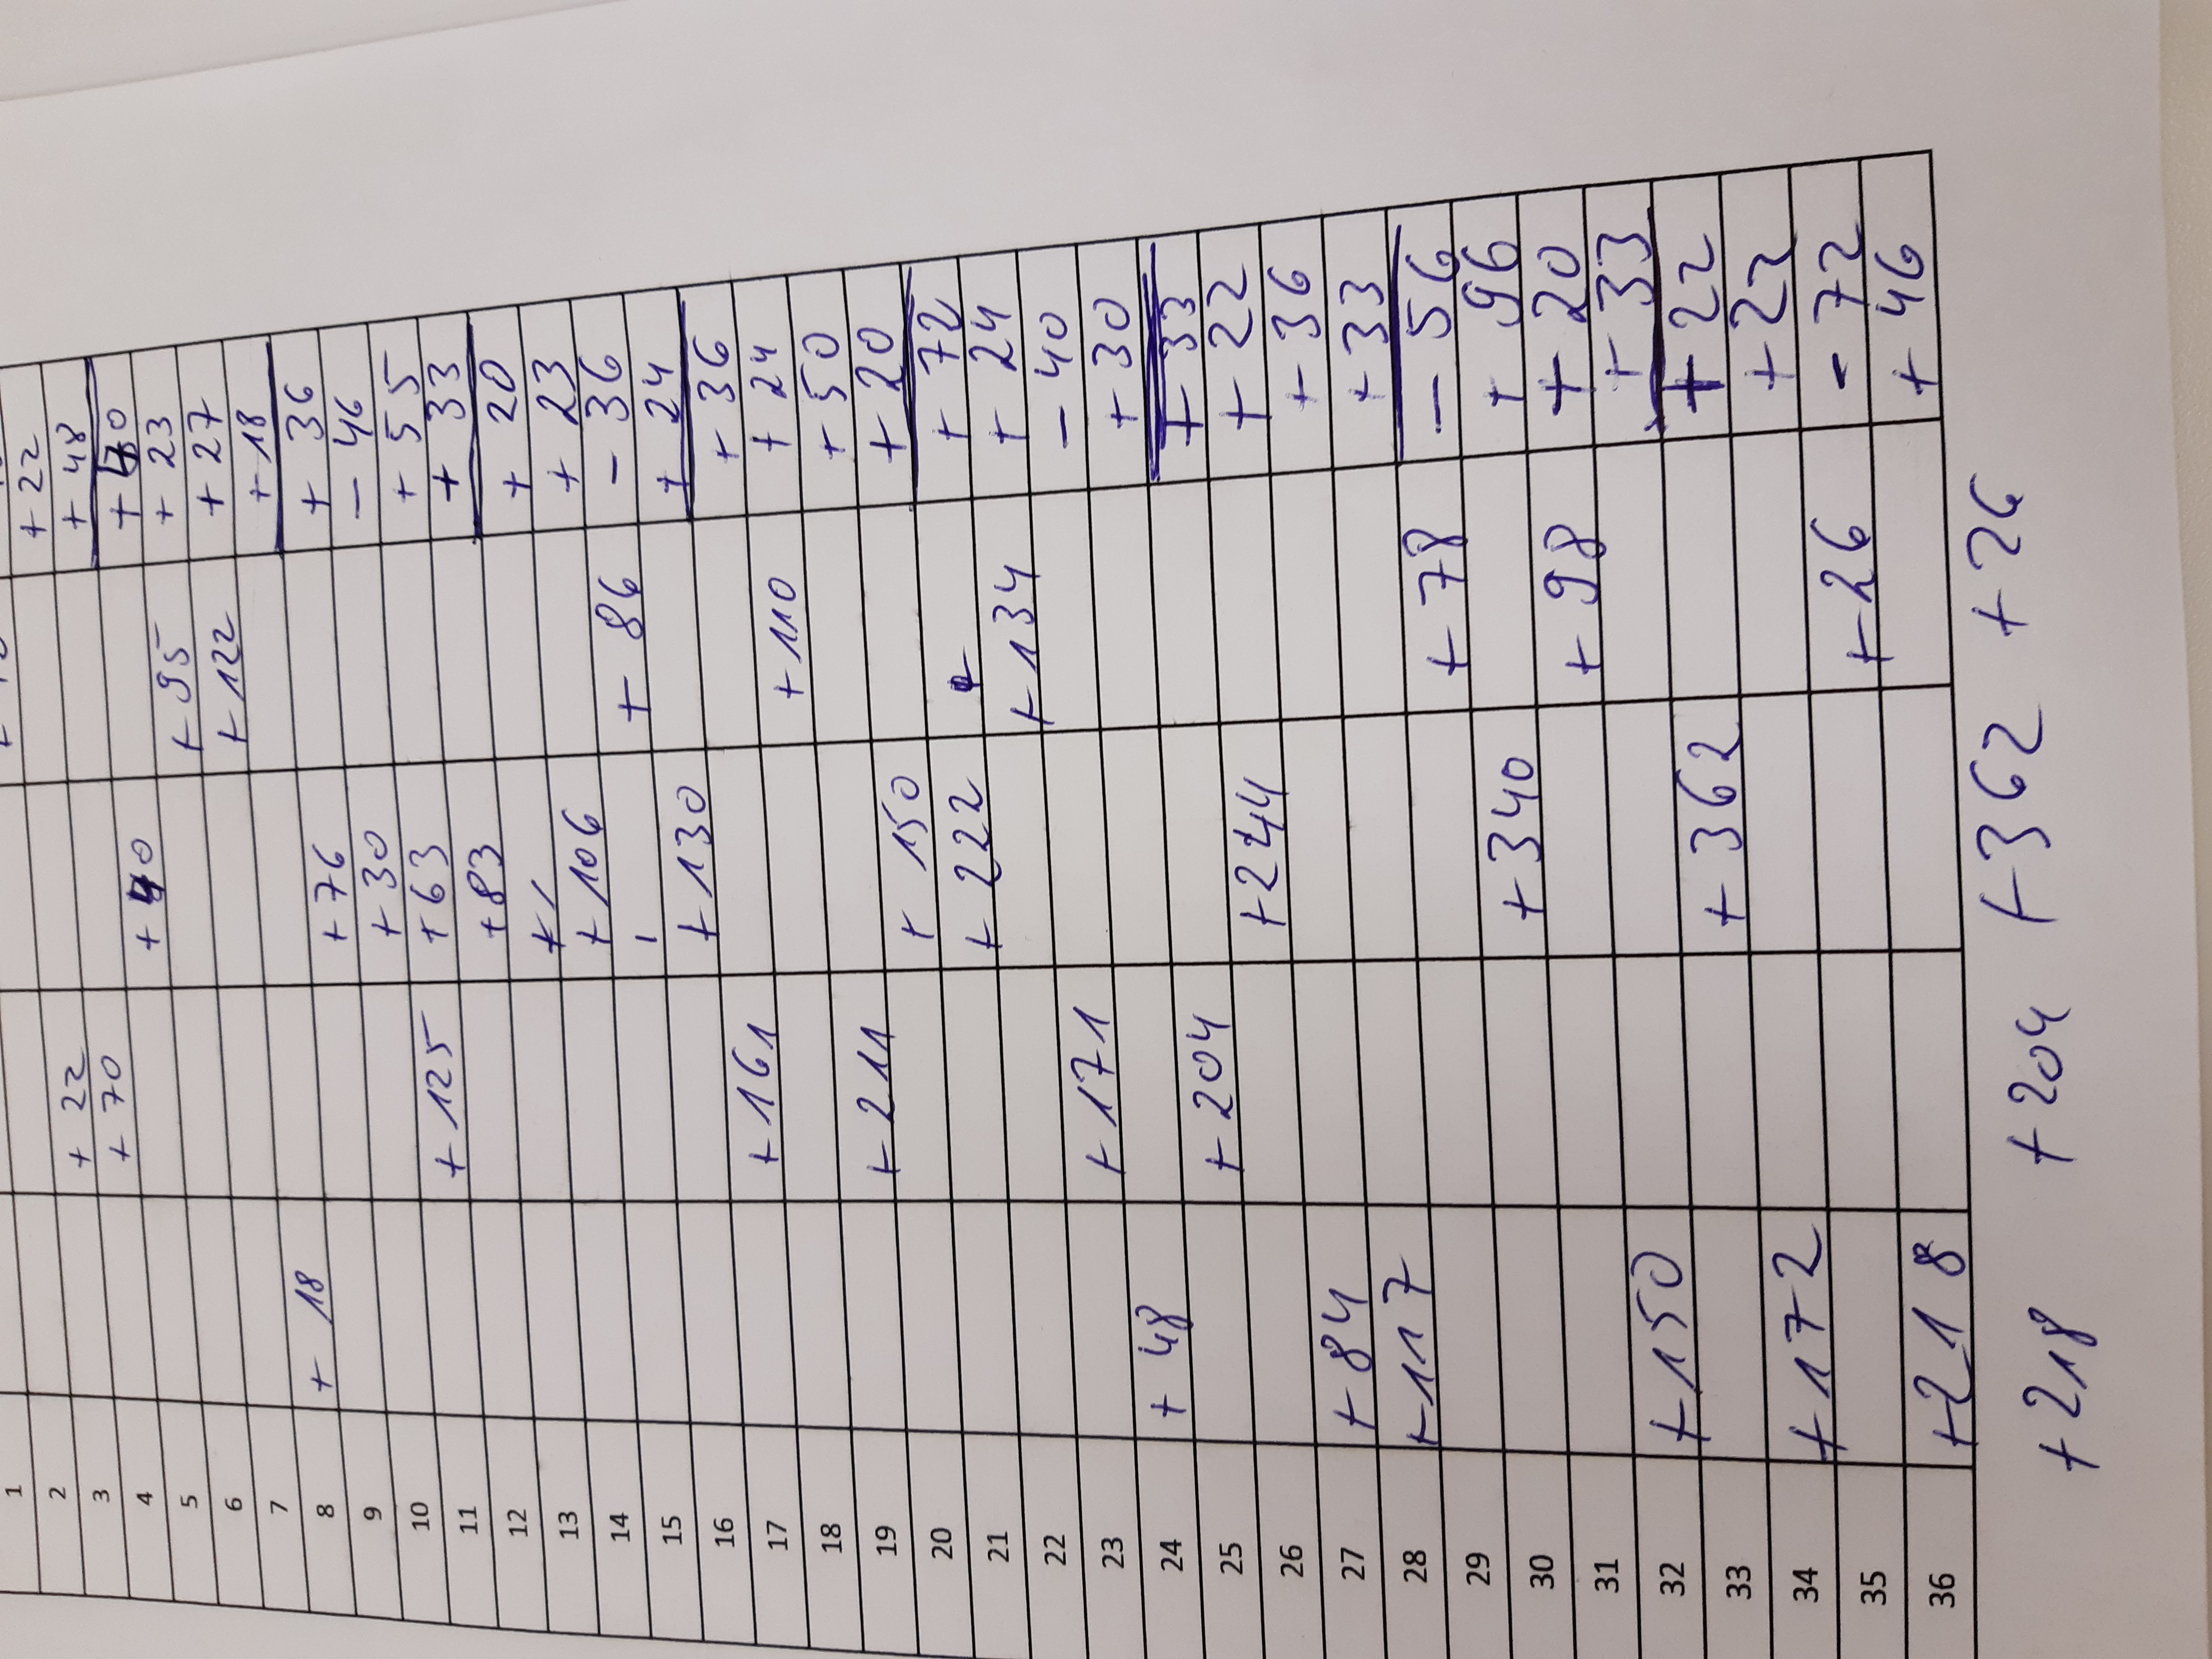 1
2
3 +22 +22
4 +70 +48
5 +40 +40
6 +95 +23
7 +122 +27
8 +18 +18
9 +76 +36
10 +30 -46
11 +125 +55
12 +63 +33
13 +83 +20
14 +106 +23
15 +86 -36
16 +130 +24
17 +161 +36
18 +110 +24
19 +211 +50
20 +150 +20
21 +222 +72
22 +134 +24
23 +171 -40
24 +48 +30
25 +204 +33
26 +244 +22
27 +84 +36
28 +117 +33
29 +78 -56
30 +340 +96
31 +98 +20
32 +150 +33
33 +362 +22
34 +172 +22
35 +26 -72
36 +218 +46
+218 +204 +362 +26